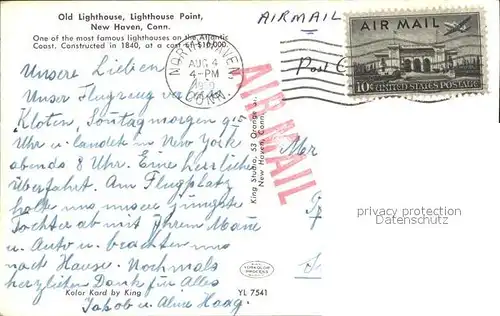 Old Lighthouse, Lighthouse Point,
New Haven, Conn.
One of the most famous lighthouses on the Atlantic
Coast. Constructed in 1840, at a cost of $10,000.
AIRMAIL
Post C
AIR MAIL
10¢ UNITED STATES POSTAGE
NORTH HAVEN
AUG 4
4-PM
CONN.
AIR MAIL
Unsere Lieben
Unser Flugzeug ver
Kloten, Sonntagmorgen 9
u. landet in New York
abends 8 Uhr. Eine herrliche
Überfahrt. Am Flugplatz
holt uns unsere jüngste
Tochter ab mit Ihrem Mann
u. Auto u. brachten uns
nach Hause. Nochmals
herzlichen Dank für Alles
Jakob u. Haag.
King Studio, 53 Orange St.
New Haven, Conn.
privacy protection
Datenschutz
Kolor Kard by King
YL 7541